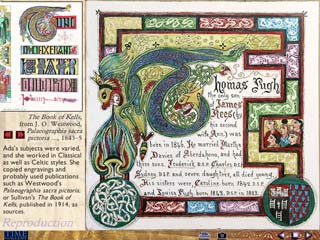 The Book of Kells,
from J. O. Westwood,
Palæographia sacra
pictoria ... 1843-5
Ada's subjects were varied,
and she worked in Classical
as well as Celtic styles. She
copied engravings and
probably used publications
such as Westwood's
Palæographia sacra pictoria.
or Sullivan's The Book of
Kells, published in 1914, as
sources.
Reproduction
TIME
Thomas Pugh
the only son of
James
Rees
by his second
wife Ann,) was
born in 1846. He married Martha
Davies of Aberdyfeno, and had
three sons, Frederick D.S.P. Charles D.S.P.
Sydney D.S.P. and seven daughters, all died young.
His sisters were, Caroline, born 1842 D.S.P.
and Louisa Pugh, born 1843, D.S.P. 1883.